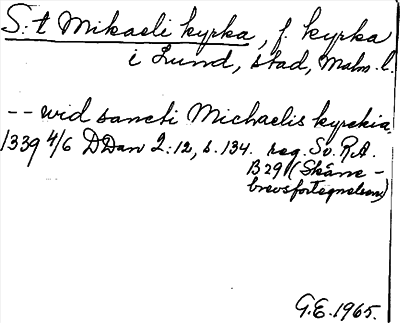 S:t Mikaeli kyrka, f. kyrka
i Lund, stad, Malm. l.
-- wid sancti Michaelis kyrckia.
1339 4/6 DDan 2:12, s. 134. reg. Sv. R.A.
B 29 (Skåne-
brevsfortegnelsen)
G.E. 1965.